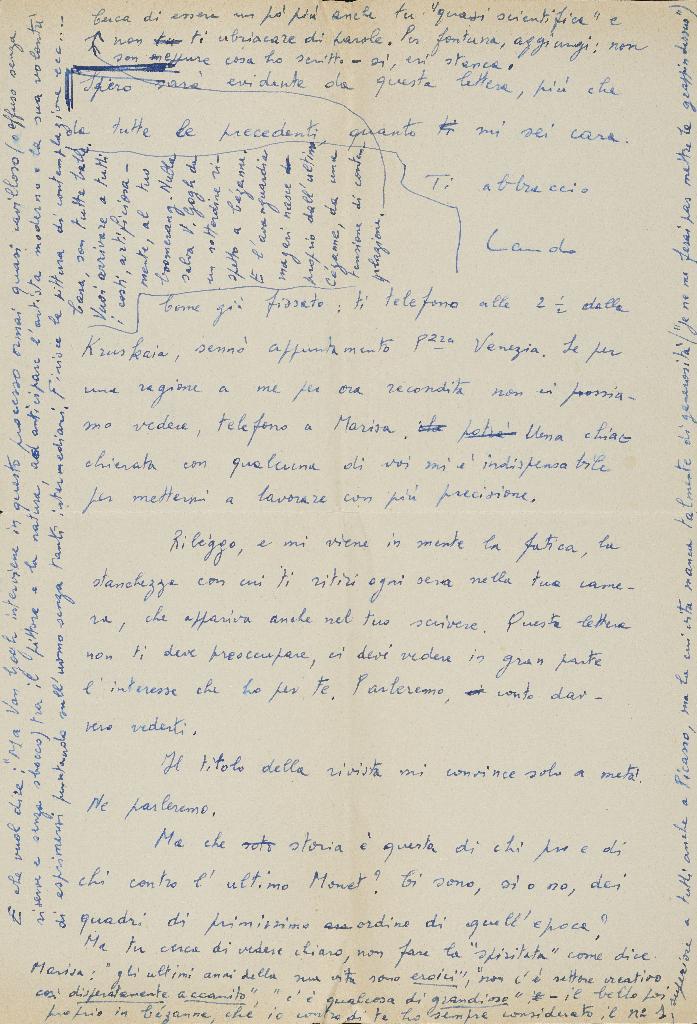 Cerca di essere un pò più anche tu "quasi scientifica" e
non ti ubriacare di parole. Per fortuna, aggiungi: non
son neppure cosa ho scritto - sì, eri stanca.
Spero sarà evidente da questa lettera, più che
da tutte le precedenti, quanto mi sei cara.
Ti abbraccio
Cara, son tutte balle,
Vuoi arrivare a tutti
i costi, artificiosa-
mente, al tuo
boomerang. Nulla
salva V. Gogh da
un sottordine ri-
spetto a Cézanne.
E l'avanguardia
magari nasce
proprio dall'ultimo
Cézanne, da una
tensione di contem-
plazione.
Come già fissato: ti telefono alle 2 ½ dalla
Kruskaia, sennò appuntamento P.zza Venezia. Se per
una ragione a me per ora recondita non ci possia-
mo vedere, telefono a Marisa. Una chiac-
chierata con qualcuna di voi mi è indispensabile
per mettermi a lavorare con più precisione.
Rileggo, e mi viene in mente la fatica, la
stanchezza con cui ti ritiri ogni sera nella tua came-
ra, che appariva anche nel tuo scrivere. Questa lettera
non ti deve preoccupare, ci devi vedere in gran parte
l'interesse che ho per te. Parleremo, conto dav-
vero vederti.
Il titolo della rivista mi convince solo a metà.
Ne parleremo.
Ma che storia è questa di chi pro e di
chi contro l'ultimo Monet? Ci sono, sì o no, dei
quadri di primissimo ordine di quell'epoca?
Ma tu cerca di vedere chiaro, non fare la "spiritata" come dice
Marisa: "gli ultimi anni della sua vita sono eroici", "non c'è settore creativo
così disperatamente accanito", "c'è qualcosa di grandioso" - il bello poi
proprio in Cézanne, che io contro di te ho sempre considerato il no 1,
superiore a tutti anche a Picasso, ma la cui vita manca talmente di generosità! ("Je ne me ferai pas mettre le grappin dessus")
E che vuol dire: "Ma Van Gogh interviene in questo processo ormai quasi cavilloso (o offuso senza
riserve e senza sbocco) tra il pittore e la natura, ad anticipare l'artista moderno e la sua volontà
di esprimersi puntando sull'uomo senza tanti intermediari. Finisce la pittura di contemplazione ecc....